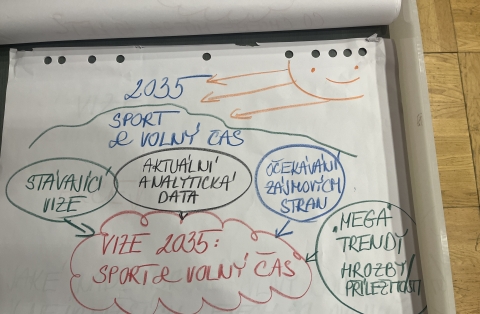 2035
SPORT
& VOLNÝ ČAS
STÁVAJÍCÍ
VIZE
AKTUÁLNÍ
ANALYTICKÁ
DATA
OČEKÁVÁNÍ
ZÁJMOVÝCH
STRAN
"MEGA"
TRENDY
HROZBY/
PŘÍLEŽITOSTI
VIZE 2035:
SPORT & VOLNÝ ČAS